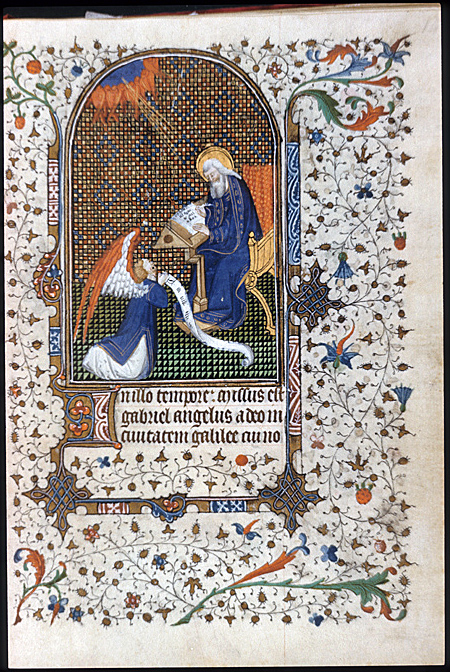 In illo tempore: missus est
gabriel angelus a deo in
ciuitatem galilee cui no